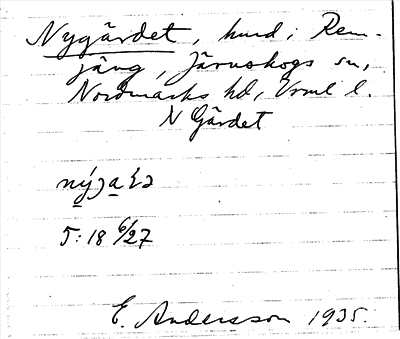 Nygärdet, hmd i Rem-
jäng, Järnskogs sn,
Nordmarks hd, Vrml l.
N Gärdet

5:18 6/27
E. Andersson 1935.